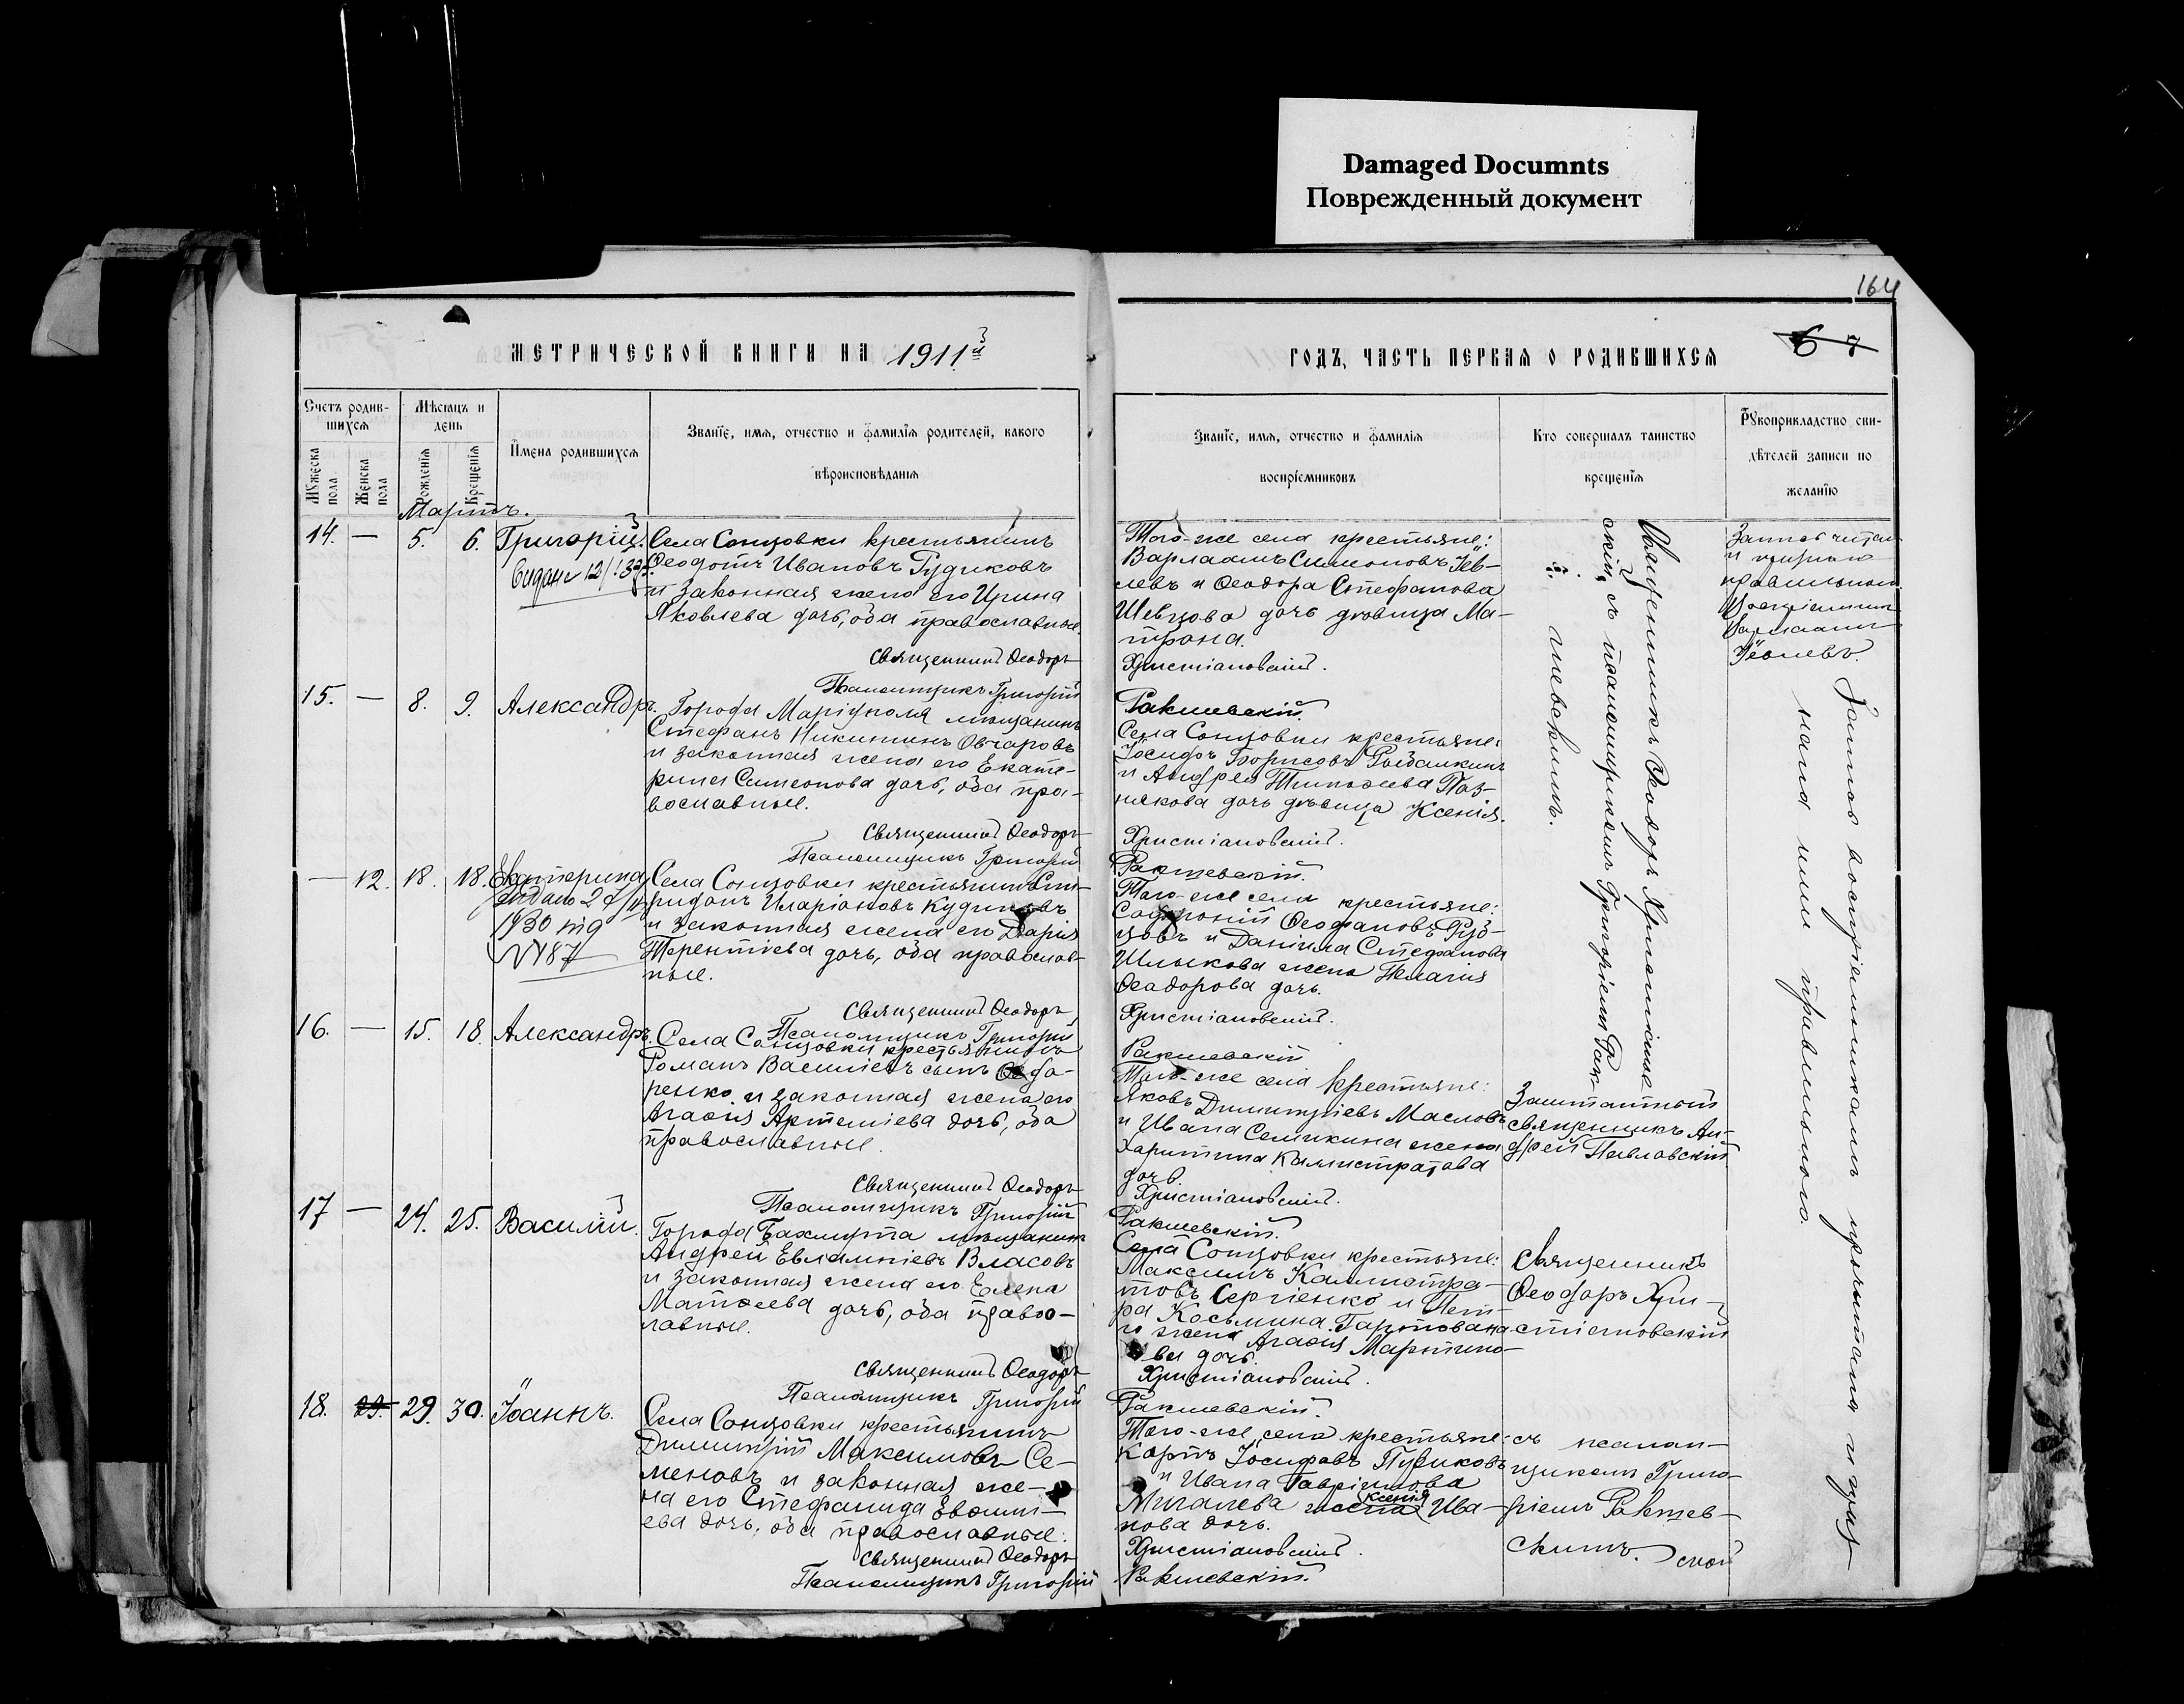 Damaged Documnts
Поврежденный документ
164
МЕТРИЧЕСКОЙ КНИГИ НА 1911й
ГОДЪ, ЧАСТЬ ПЕРВАЯ О РОДИВШИХСЯ
6 7
Счетъ родив-
шихся
Мѣсяцъ и
день
Мужеска
пола
Женска
пола
Рожденія
Крещенія
Имена родившихся
Званіе, имя, отчество и фамилія родителей, какого
вѣроисповѣданія
Званіе, имя, отчество и фамилія
воспріемниковъ
Кто совершалъ таинство
крещенія
Рукоприкладство сви-
дѣтелей записи по
желанію
Мартъ.
14. — 5. 6. Григорій.
Села Сонцовки крестьянинъ
Ѳеодотъ Ивановъ Гудиковъ
и законная жена его Ирина
Яковлева дочь, оба православные.
Священникъ Ѳеодоръ
Псаломщикъ Григорій
Того-же села крестьяне:
Варлаамъ Симоновъ Іев-
левъ и Ѳеодора Стефанова
Шевцова дочь дѣвица Ма-
трона.
Христіановскій.
Ракшевскій.
Священникъ Ѳеодоръ Христіанов-
скій, съ псаломщикомъ Григоріемъ Рак-
шевскимъ.
Запись читал
и признаю
правильною
Воспріемникъ
Варлаамъ
Іевлевъ.
Запись воспріемникамъ прочитана и приз-
нана ими правильною.
15. — 8. 9. Александръ.
Города Маріуполя мѣщанинъ
Стефанъ Никитинъ Овчаровъ
и законная жена его Екате-
рина Симеонова дочь, оба пра-
вославные.
Священникъ Ѳеодоръ
Псаломщикъ Григорій
Села Сонцовки крестьяне:
Іосифъ Борисовъ Рыбалкинъ
и Андрея Тимоѳеева Поз-
някова дочь дѣвица Ксенія.
Христіановскій.
Ракшевскій.
— 12. 18. 18. Екатерина
1930 г
N 187
Села Сонцовки крестьянинъ Спи-
ридонъ Иларіоновъ Кудиновъ
и законная жена его Дарія
Терентіева дочь, оба православ-
ные.
Священникъ Ѳеодоръ
Псаломщикъ Григорій
Того-же села крестьяне:
Софроній Ѳеофановъ
и Даніила Стефанова
Шлыкова жена Пелагія
Ѳеодорова дочь.
Христіановскій.
Ракшевскій
16. — 15. 18. Александръ.
Села Сонцовки крестьянинъ
Романъ Василіевъ сынъ
ренко и законная жена его
Агаѳія Артеміева дочь, оба
православные.
Священникъ Ѳеодоръ
Псаломщикъ Григорій
Того-же села крестьяне:
Яковъ Димитріевъ Масловъ
и Ивана Семикина жена
Харитина Каллистратова
дочь.
Христіановскій.
Ракшевскій.
Заштатный
священникъ Ан-
дрей Павловскій
17 — 24. 25. Василій.
Города Бахмута мѣщанинъ
Андрей Евлампіевъ Власовъ
и законная жена его Елена
Матѳеева дочь, оба правос-
лавные.
Священникъ Ѳеодоръ
Псаломщикъ Григорій
Села Сонцовки крестьяне:
Максимъ Каллистра-
товъ Сергіенко и Пет-
ра Косьмина
жена Агаѳія Мартино-
ва дочь.
Христіановскій.
Ракшевскій.
Священникъ
Ѳеодоръ Хри-
стіановскій
18. 29. 29. 30. Іоаннъ.
Села Сонцовки крестьянинъ
Димитрій Максимовъ Се-
меновъ и законная же-
на его Стефанида Евѳимі-
ева дочь, оба православные.
Священникъ Ѳеодоръ
Псаломщикъ Григорій
Того-же села крестьяне:
Карпъ Іосифовъ Пудиковъ
и Ивана Гавріилова
Мигалева жена Ксенія Ива-
нова дочь.
Христіановскій.
Ракшевскій.
съ псалом-
щикомъ Григо-
ріемъ Ракшев-
скимъ.